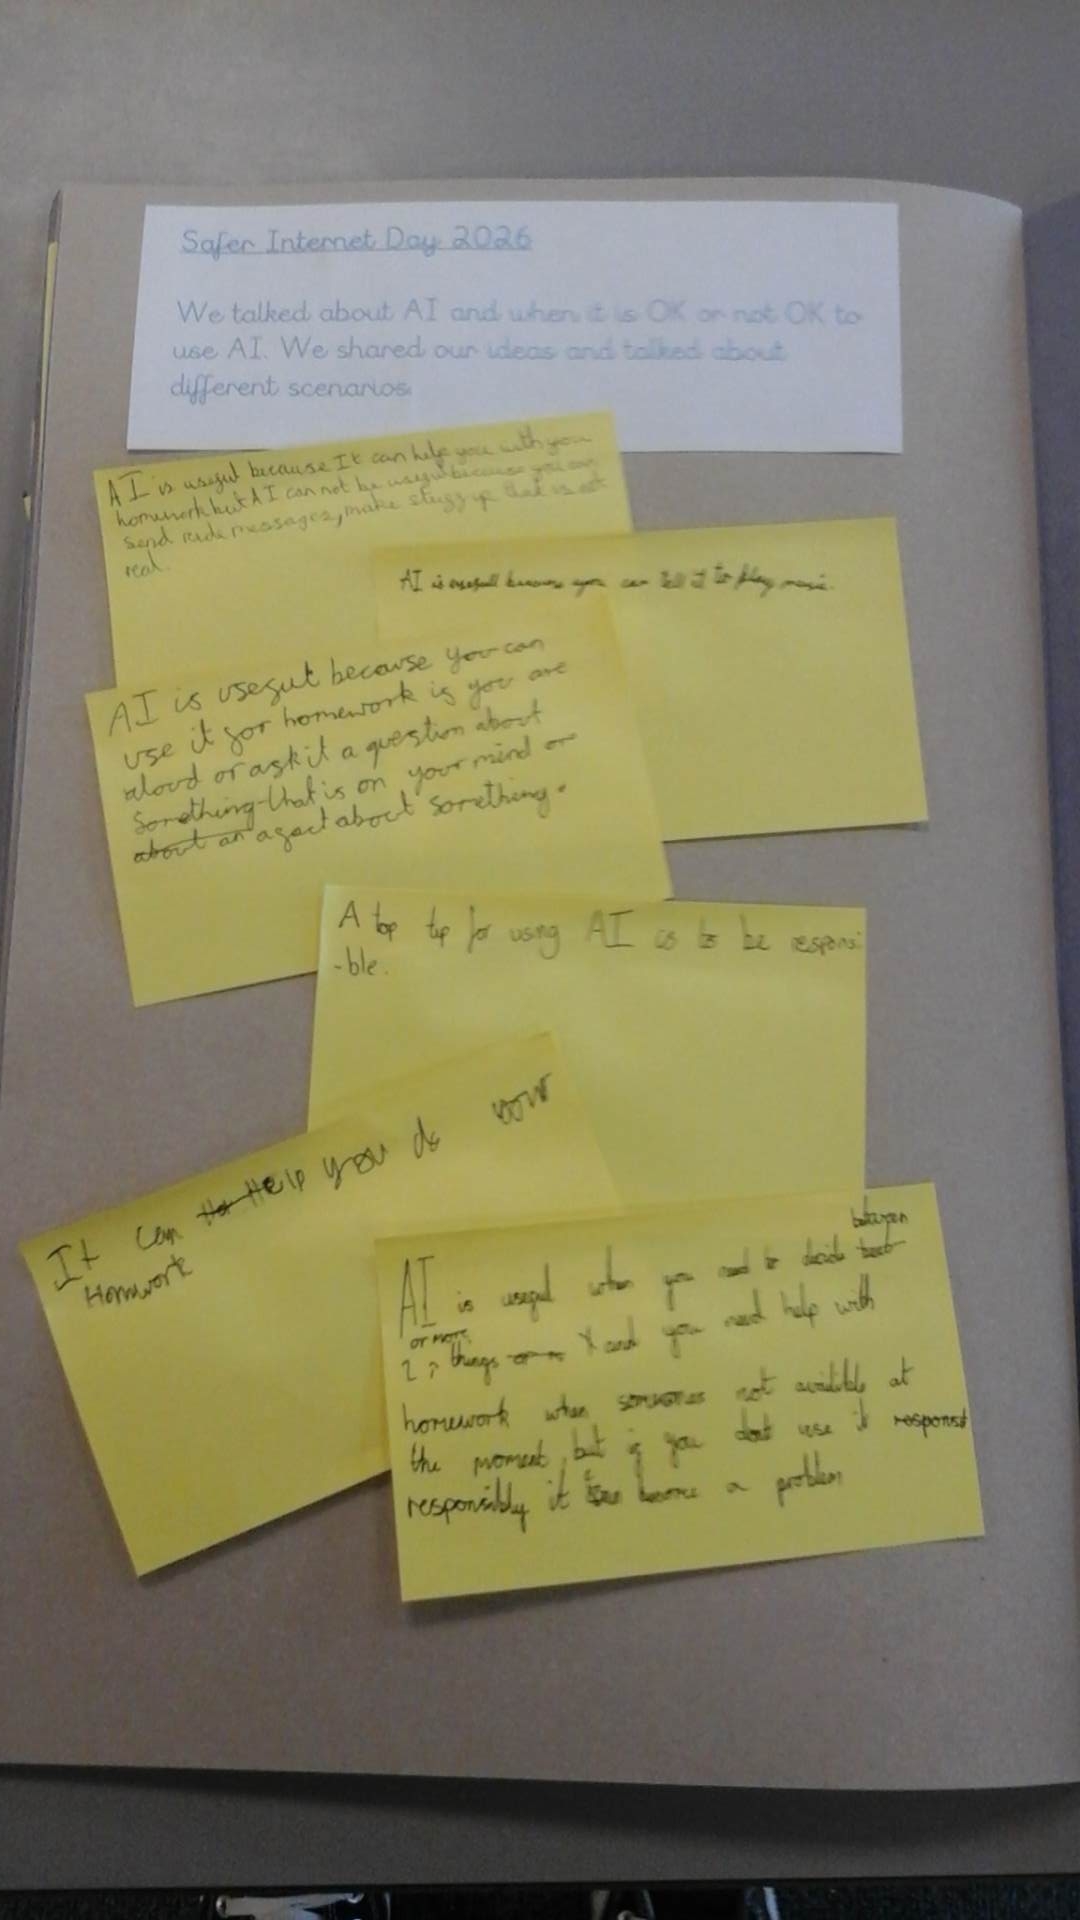 Safer Internet Day 2026
We talked about AI and when it is OK or not OK to
use AI. We shared our ideas and talked about
different scenarios.
AI is useful because It can help you with your
homework but AI can not be useful because you can
send rude messages, make stuff up that is not
real.
AI is usefull because you can tell it to play music.
AI is useful because you can
use it for homework if you are
aloud or ask it a question about
Something that is on your mind or
about an a fact about something.
A top tip for using AI is to be responsi
-ble.
It can Help you do your
Homwork
between
AI is useful when you need to decide
or more
2, things and you need help with
homework when someones not availible at
the moment, but if you dont use it respons
responsibly it become a problem